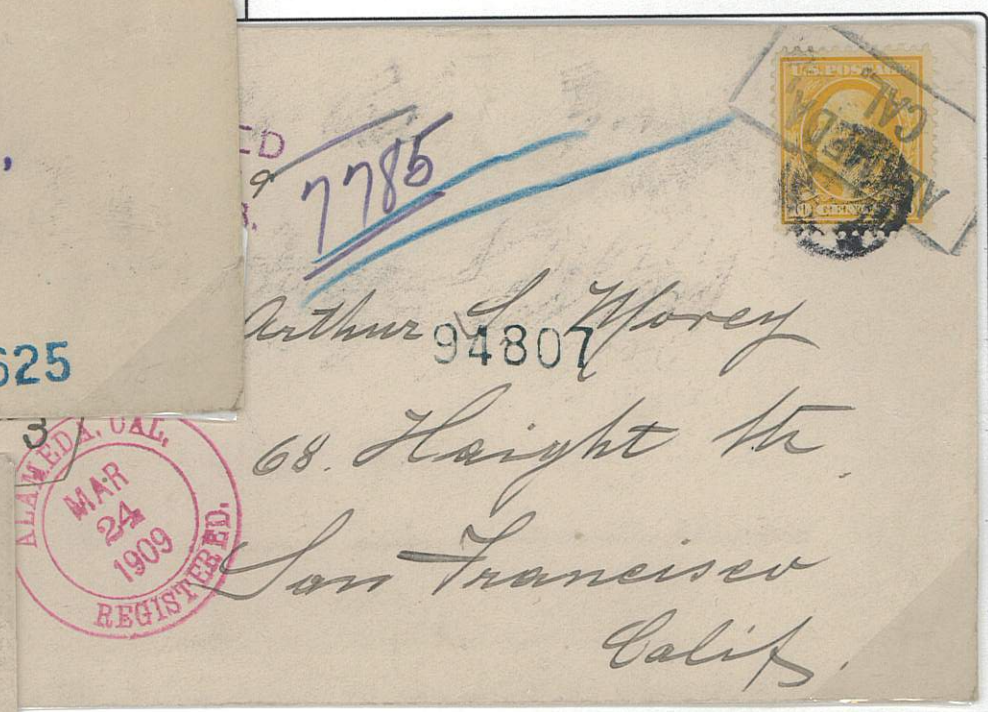 U.S. POSTAGE
10 CENTS
ALAMEDA,
CAL.
7785
Arthur L. Morey
94807
68. Haight Str.
San Francisco
Calif.
625
3
ALAMEDA, CAL.
MAR
24
1909
REGISTERED.